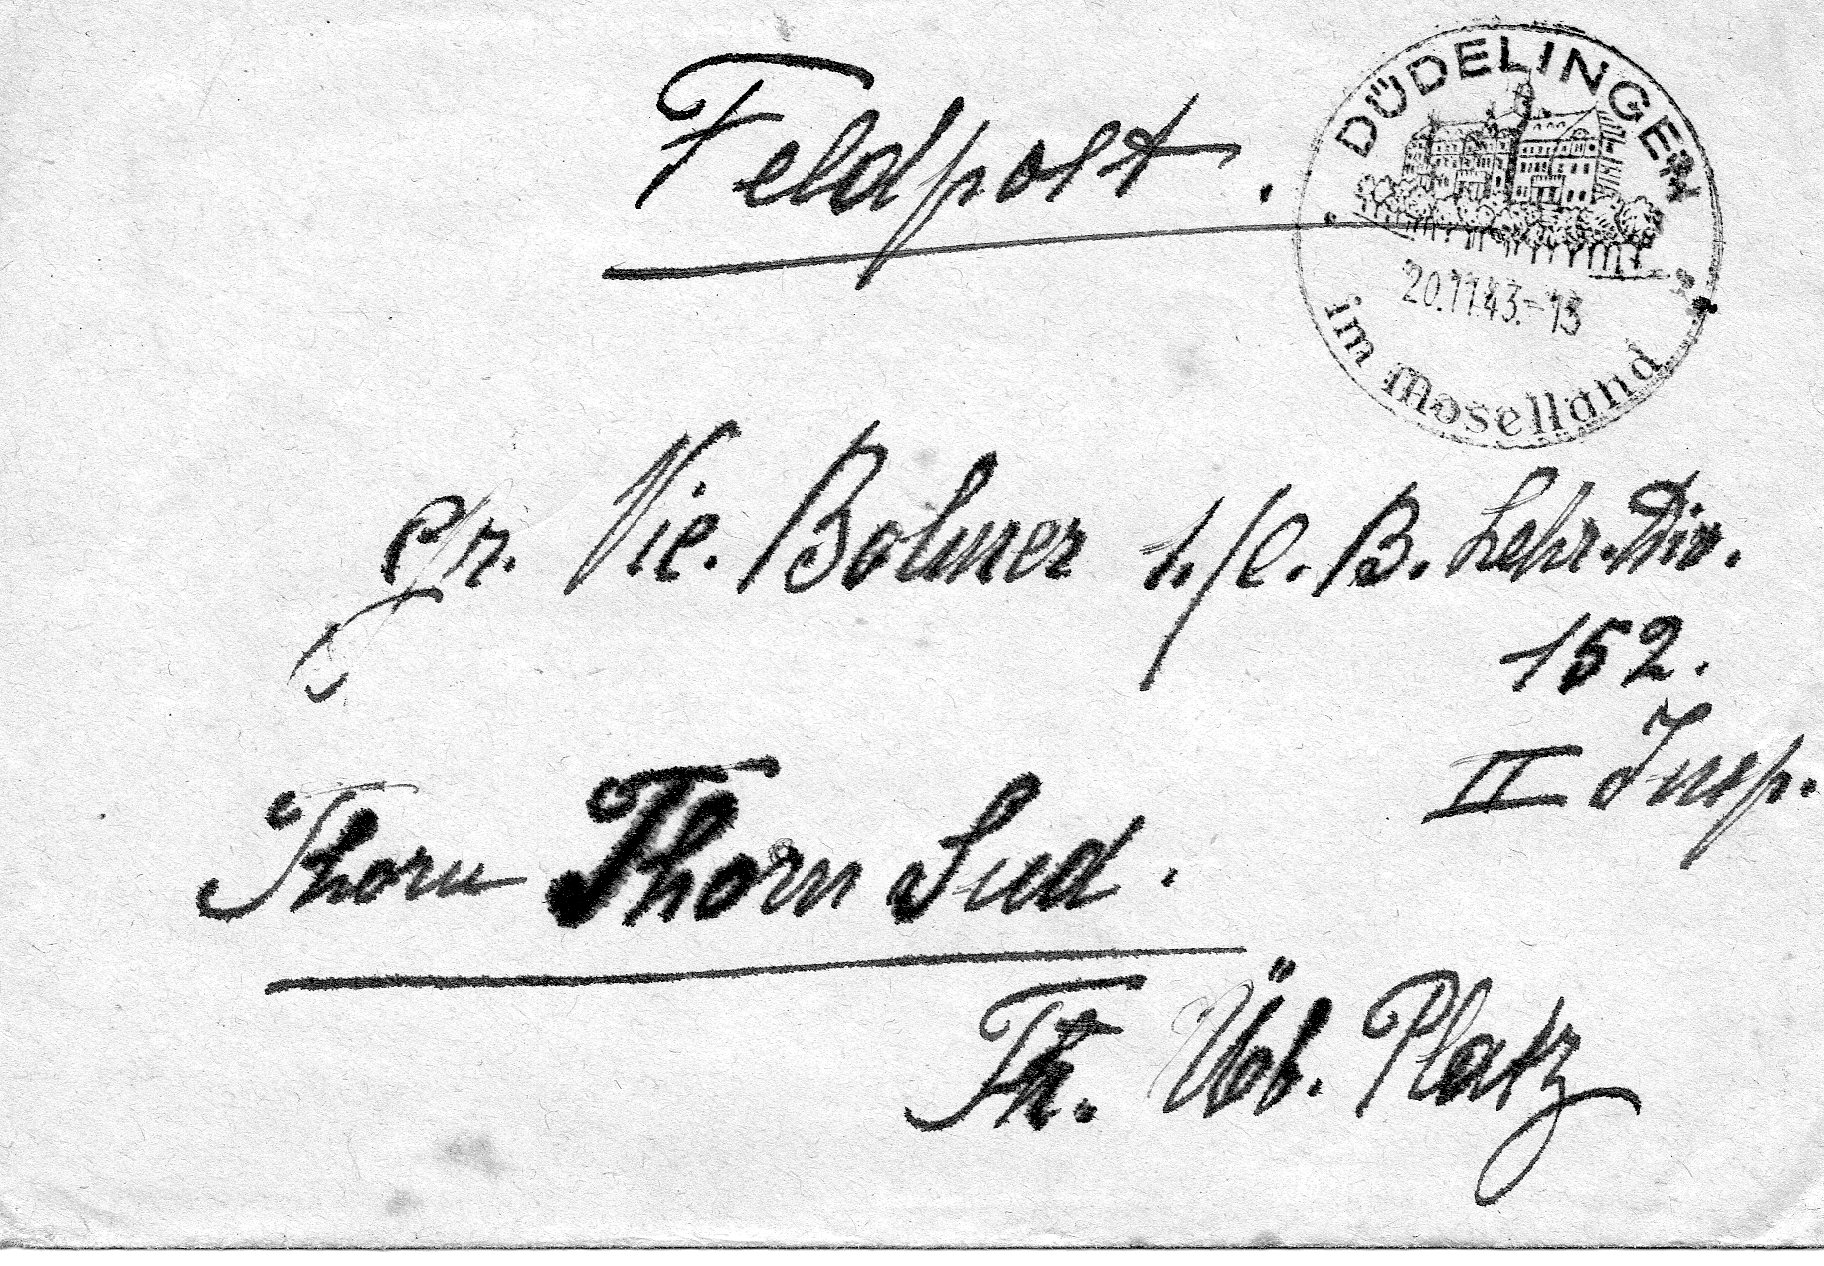 Feldpost.
DÜDELINGEN
20.11.43.-13
im Moselland
Gr. Nic. Bohmer 1./C. B. Lehr. Div.
152.
II Insp.
Thorn Thorn Süd.
Tr. Üb. Platz